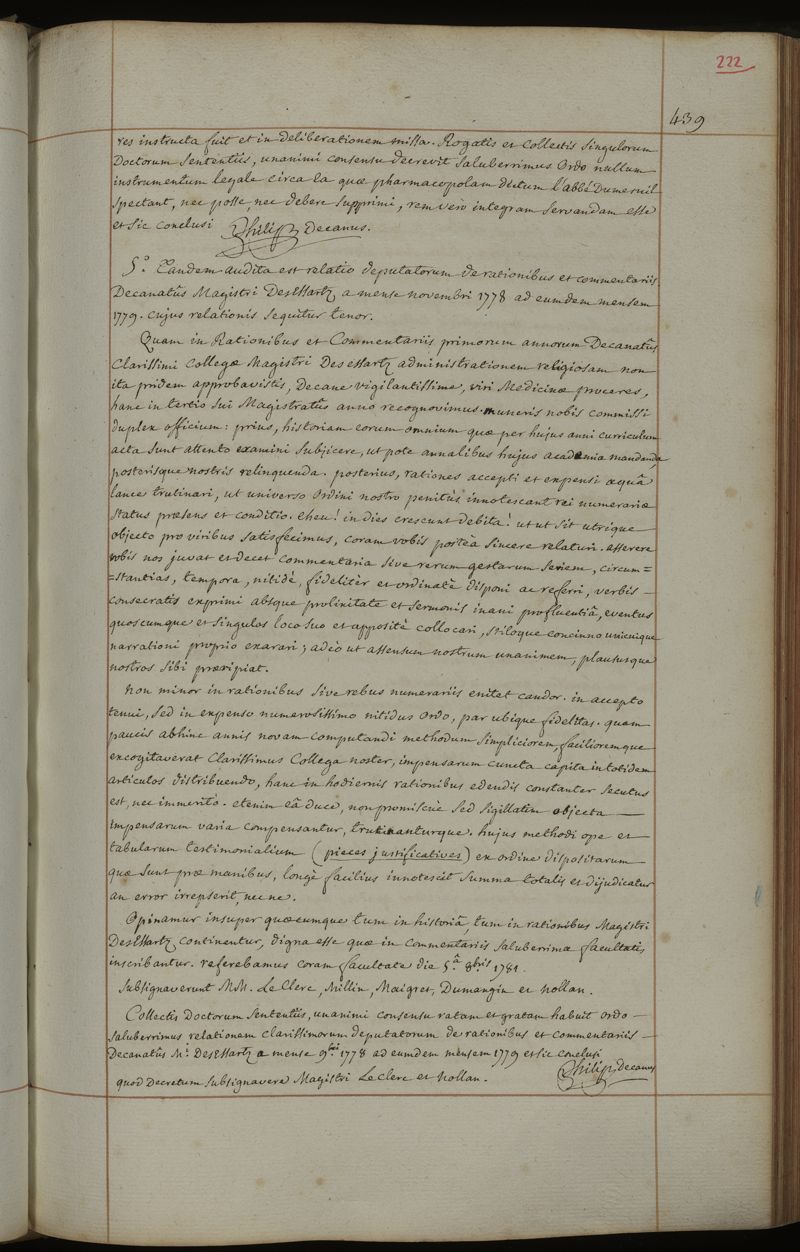 222
439
res instructa fuit et in deliberationem missa. Rogatis et Collectis singulorum
Doctorum Sententiis, unanimi consensu decrevit saluberrimus Ordo nullum
instrumentum legale circa ea quæ pharmacopolam dictum l'abbé Dumesnil
spectant, nec posse, nec debere supprimi, rem vero integram servandam esse
et sic conclusi Philip Decanus.
5.° Tandem audita est relatio deputatorum de rationibus et commentariis
Decanatûs Magistri DesEssartz a mense novembri 1778 ad eumdem mensem
1779. cujus relationis sequitur tenor.
Quam in Rationibus et Commentariis primorum annorum Decanatûs
Clarissimi Collegæ Magistri DesEssartz administrationem religiosam non
ita pridem approbavistis, Decane vigilantissime, viri Medicinæ proceres,
hanc in tertio sui Magistratûs anno recognovimus. muneris nobis commissi
duplex officium: prius, historiam eorum omnium quæ per hujus anni curriculum
acta sunt attento examini subjicere, ut pote annalibus hujus academiæ mandanda,
posterisque nostris relinquenda. posterius, rationes accepti et expensi æquâ
lance trutinari, ut universo Ordini nostro penitùs innotescant rei numerariæ
status præsens et conditio. eheu! in dies crescunt debita! ut ut sit utrique
objecto pro viribus satisfecimus, coram vobis portèa sincere relaturi. asserere
vobis nos juvat et decet commentaria sive rerum gestarum seriem, circum=
=stantias, tempora, nitidè, fidelitèr et ordinatè disponi ac referri, verbis
consecratis exprimi absque prolixitate et sermonis inani profluentiâ, eventus
quoscumque et singulos loco suo et appositè collocari, stiloque concinno unicuique
narrationi proprio exarari; adeò ut assensum nostrum unanimem, plaususque
nostros sibi præripiat.
Non minor in rationibus sive rebus numerariis enitet candor. in accepto
tenui, sed in expenso numerosissimo nitidus ordo, par ubique fidelitas. quam
paucis abhinc annis novam computandi methodum simpliciorem, facilioremque
excogitaverat Clarissimus Collega noster, impensarum cuncta capita in totidem
articulos distribuendo, hanc in hodiernis rationibus edendis constanter secutus
est, nec immerito. etenim eâ duce, non promiscuè sed sigillatim objecta
impensarum varia compensantur, trutinanturque. hujus methodi ope et
tabularum testimonialium (pieces justificatives) ex ordine dispositarum
quæ sunt præ manibus, longè facilius innotescit summa totalis et dijudicatur
an error irrepserit, nec ne.
Opinamur insuper quæcumque tum in historiâ, tum in rationibus Magistri
DesEssartz continentur, digna esse quæ in commentariis saluberrimæ facultatis
inscribantur. referebamus coram facultate die 5.â 8bris 1781.
Subsignaverunt MM. LeClerc, Millin, Maigret, Dumangin et Nollan.
Collectis Doctorum Sententiis, unanimi consensu ratam et gratam habuit Ordo
saluberrimus relationem clarissimorum deputatorum de rationibus et commentariis
Decanatûs M.i DesEssartz a mense 9bri 1778 ad eumdem mensem 1779 et sic conclusi
Philip, Decanus
quod Decretum subsignavere Magistri LeClerc et Nollan.